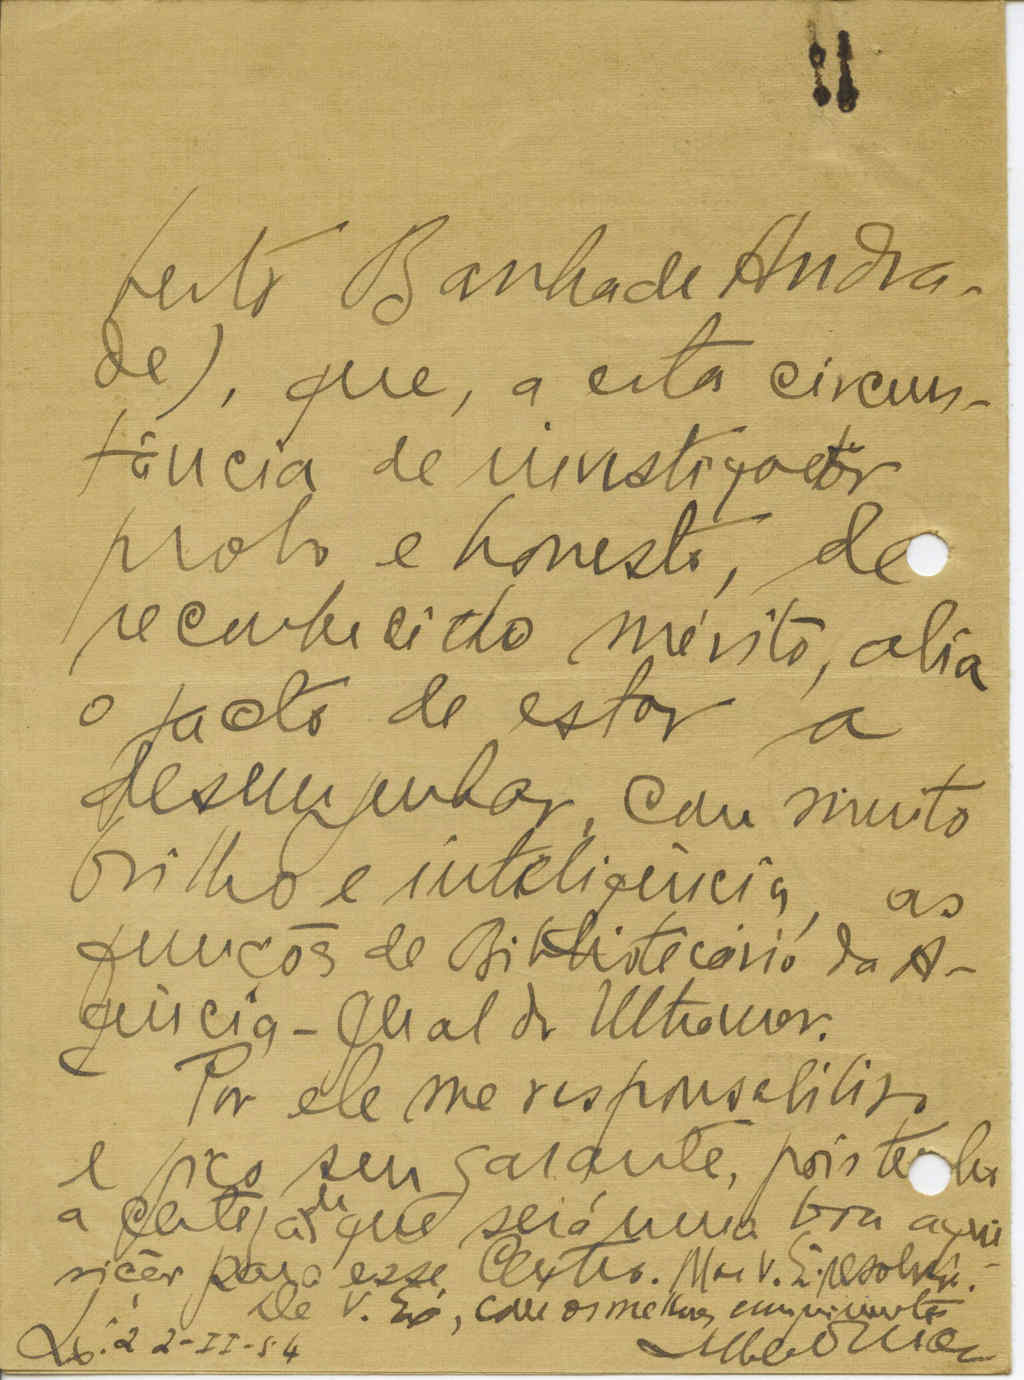 berto Banha de Andra-
de), que, a esta circuns-
tância de investigador
probo e honesto, de
reconhecido mérito, alia
o facto de estar a
desempenhar, com muito
brilho e inteligência, as
funções de Bibliotecário da A-
gência-Geral do Ultramar.
Por ele me responsabilizo
e fico seu garante, pois tenho
a certeza de que será uma boa aqui
sição para esse Centro. Mas V. Ex. resolverá.
De V. Exª, com os melhores cumprimentos
Lx. 22-II-54